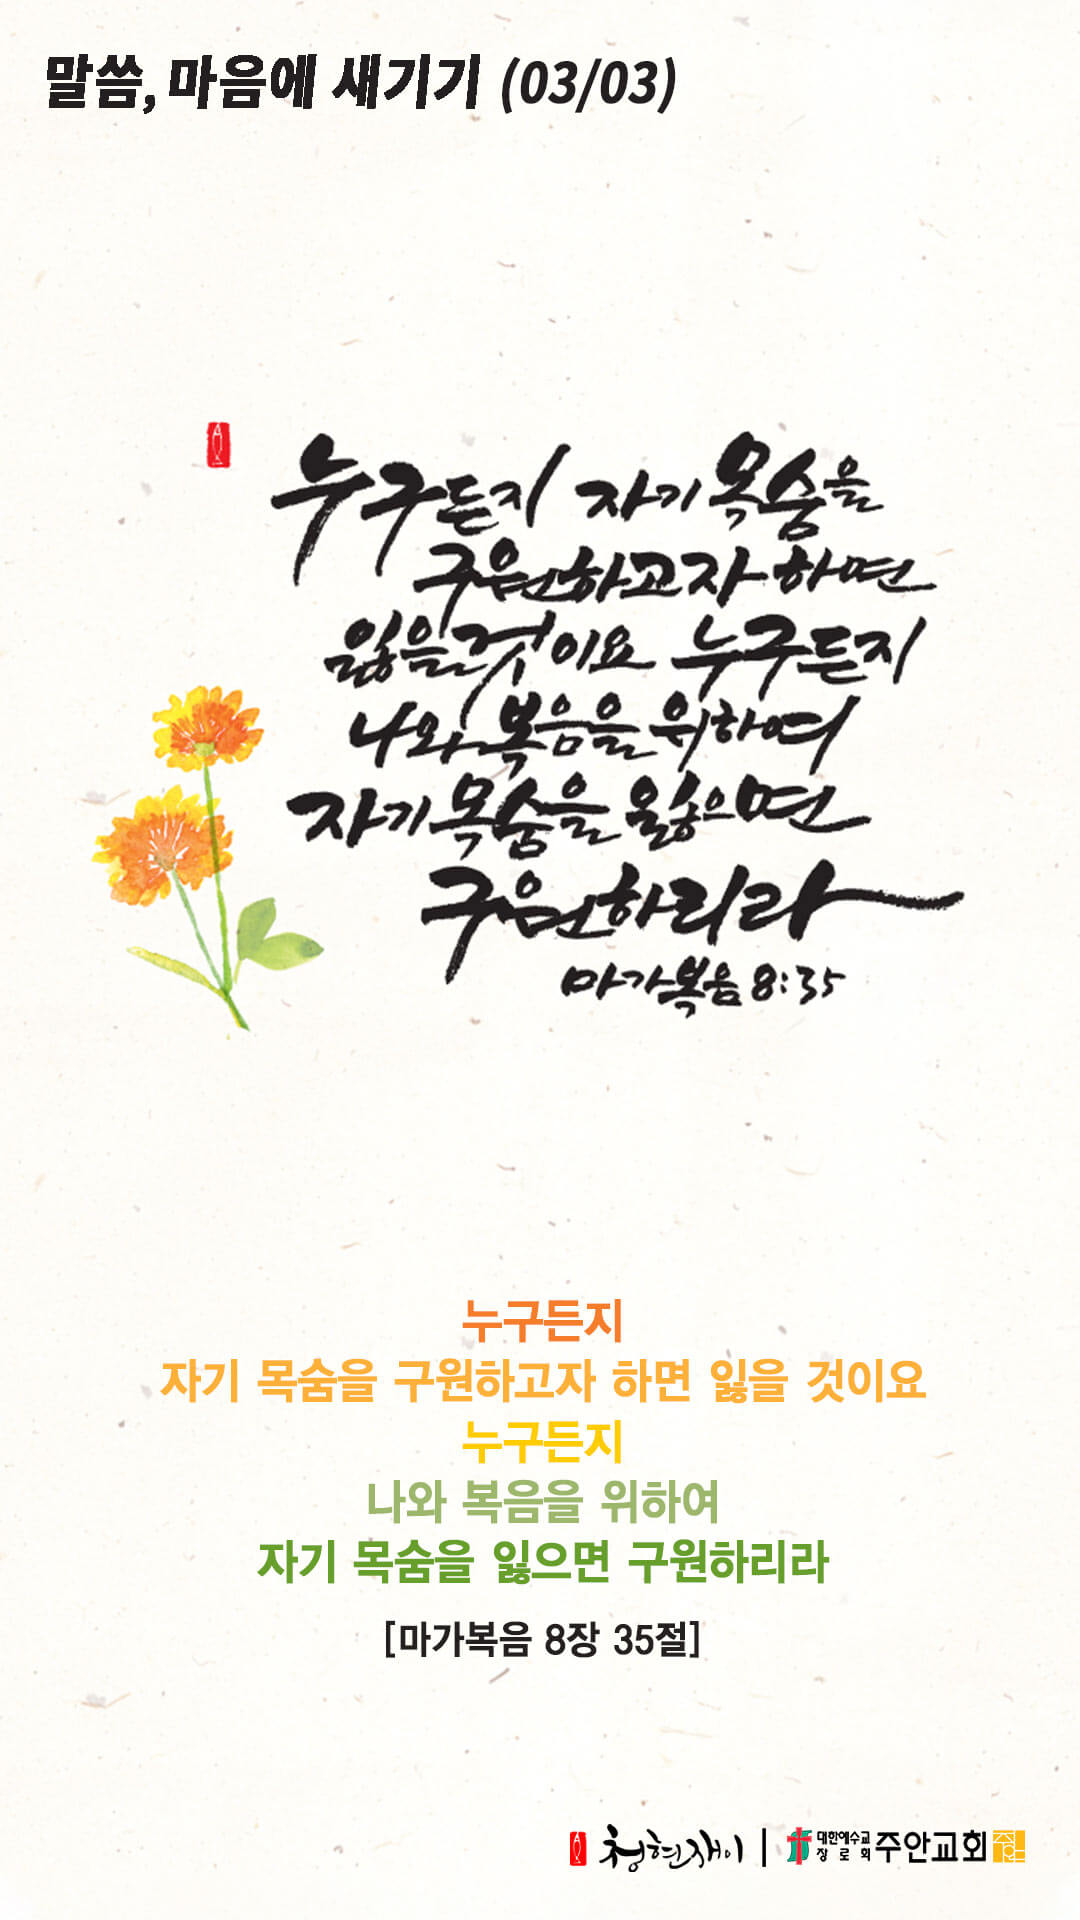 말씀, 마음에 새기기 (03/03)
누구든지 자기 목숨을
구원하고자 하면
잃을 것이요 누구든지
나와 복음을 위하여
자기 목숨을 잃으면
구원하리라
마가복음 8:35
누구든지
자기 목숨을 구원하고자 하면 잃을 것이요
누구든지
나와 복음을 위하여
자기 목숨을 잃으면 구원하리라
[마가복음 8장 35절]
청현재이 | 대한예수교 장로회 주안교회